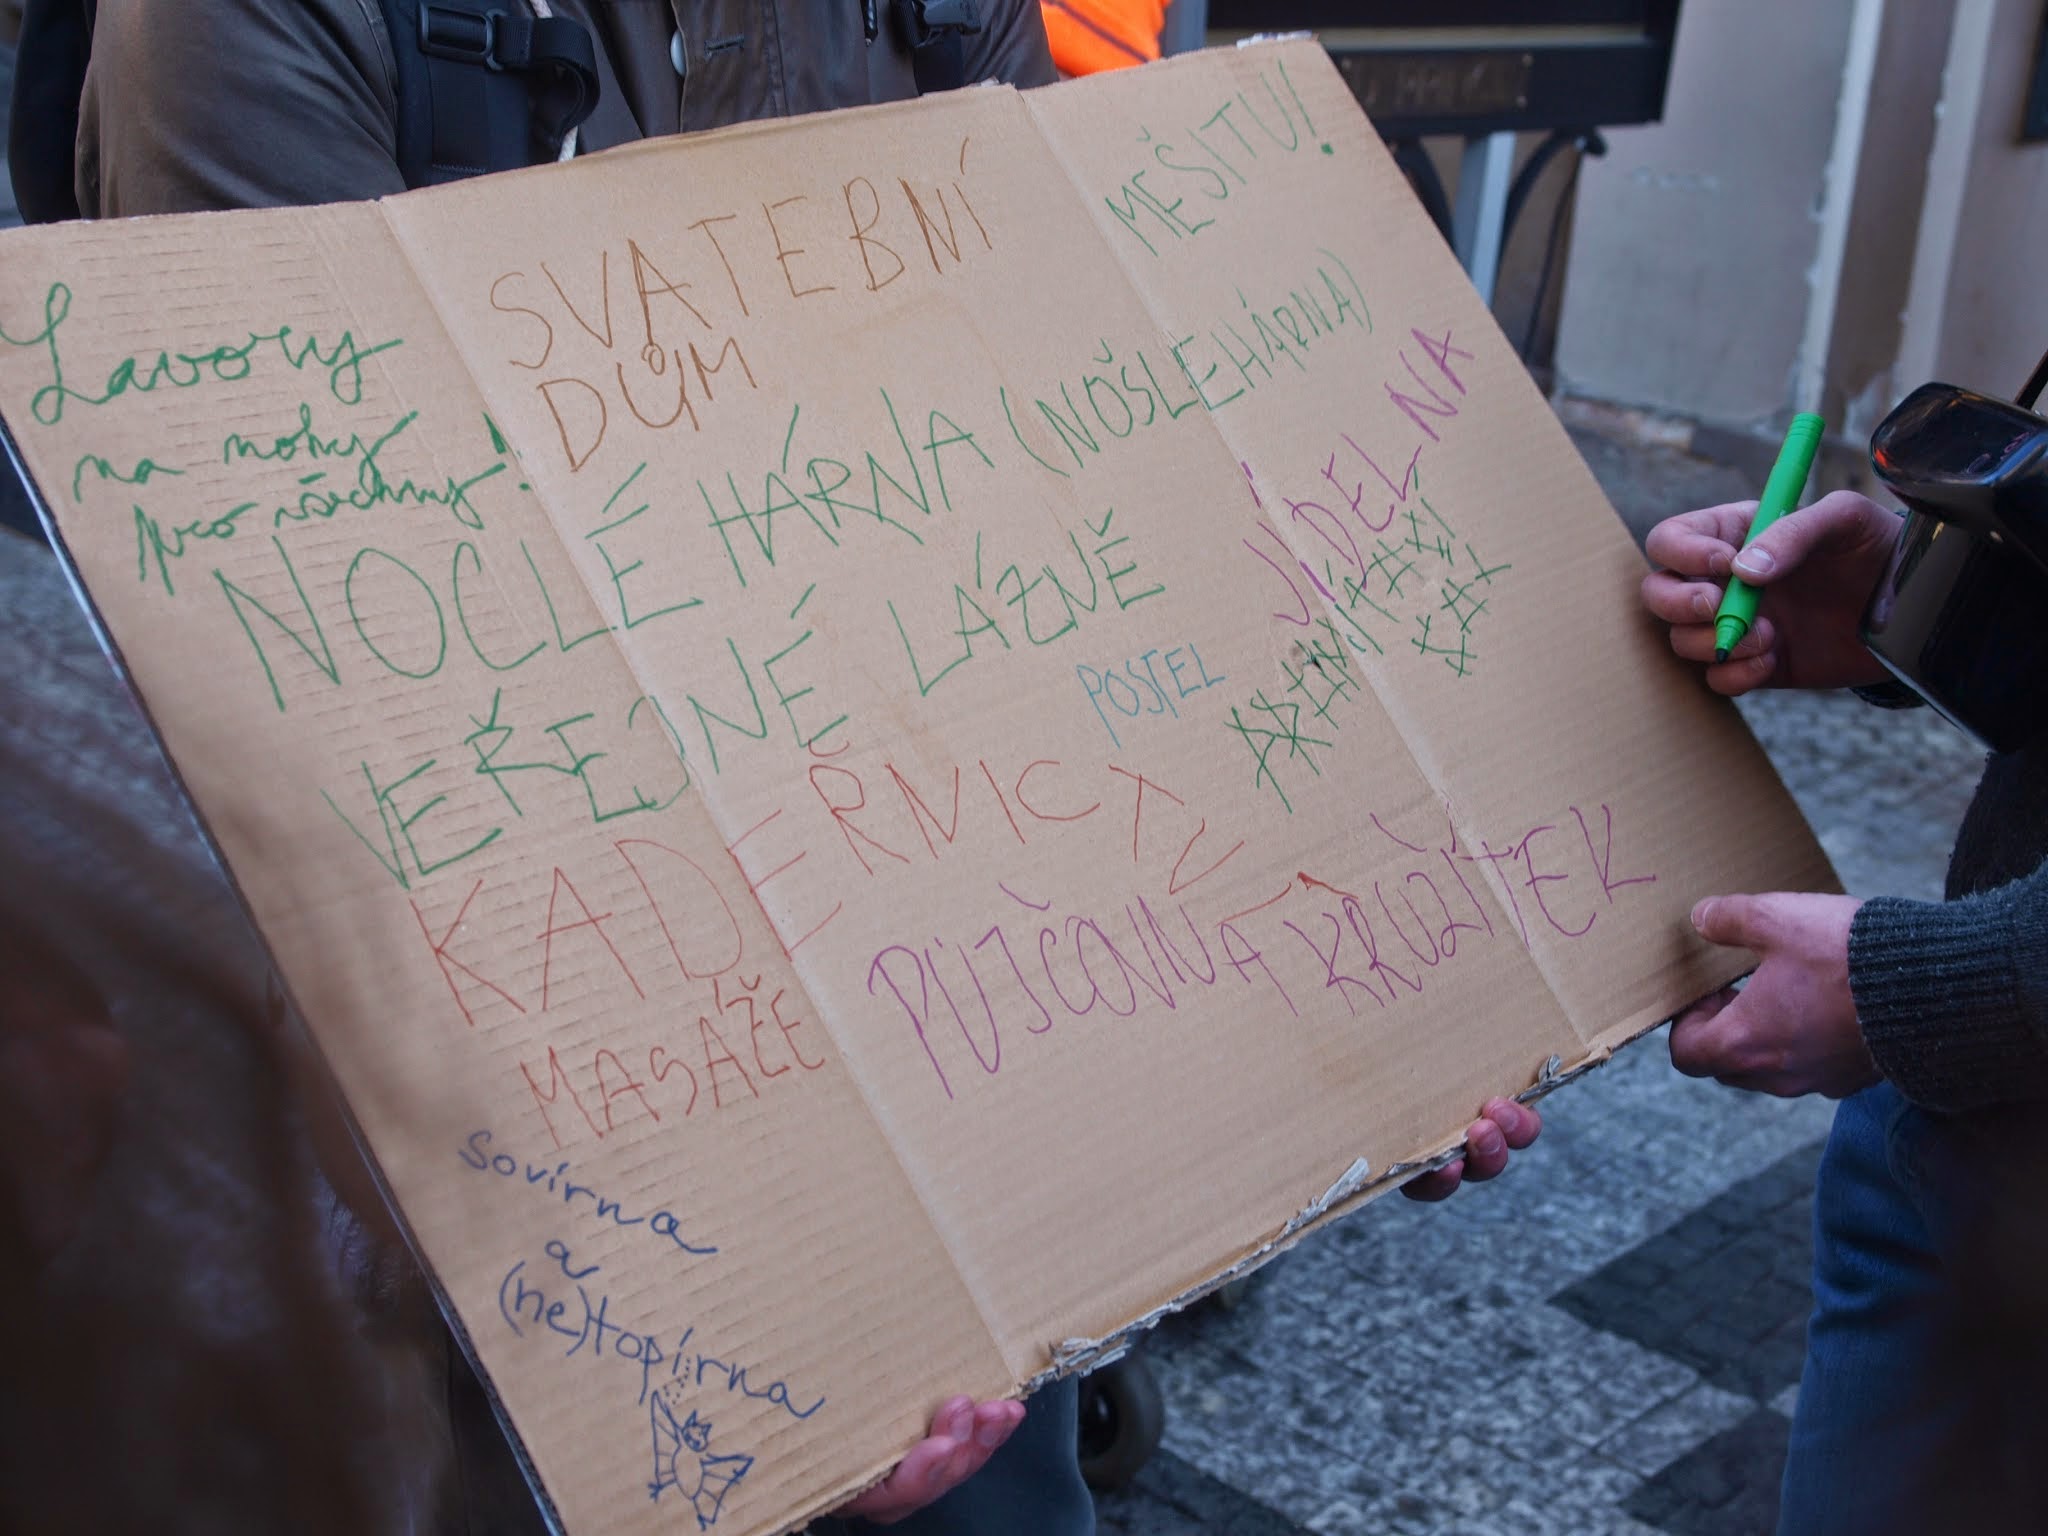 MEŠITU!
SVATEBNÍ
DŮM
Lavory
na nohy
pro všechny!
NOCLÉHÁRNA (NOŠLEHÁRNA)
JÍDELNA
VEŘEJNÉ LÁZNĚ
POSTEL
KADEŘNICTVÍ
PŮJČOVNA KRUŽÍTEK
MASÁŽE
Sovírna
a
(ne)topírna